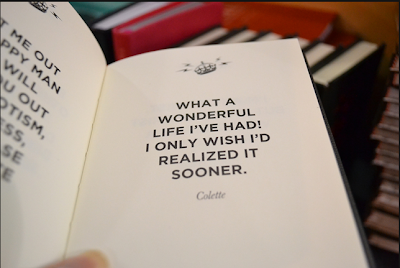 T ME OUT
PPY MAN
WILL
U OUT
OTISM,
ESS,
SE
E
WHAT A
WONDERFUL
LIFE I'VE HAD!
I ONLY WISH I'D
REALIZED IT
SOONER.
Colette